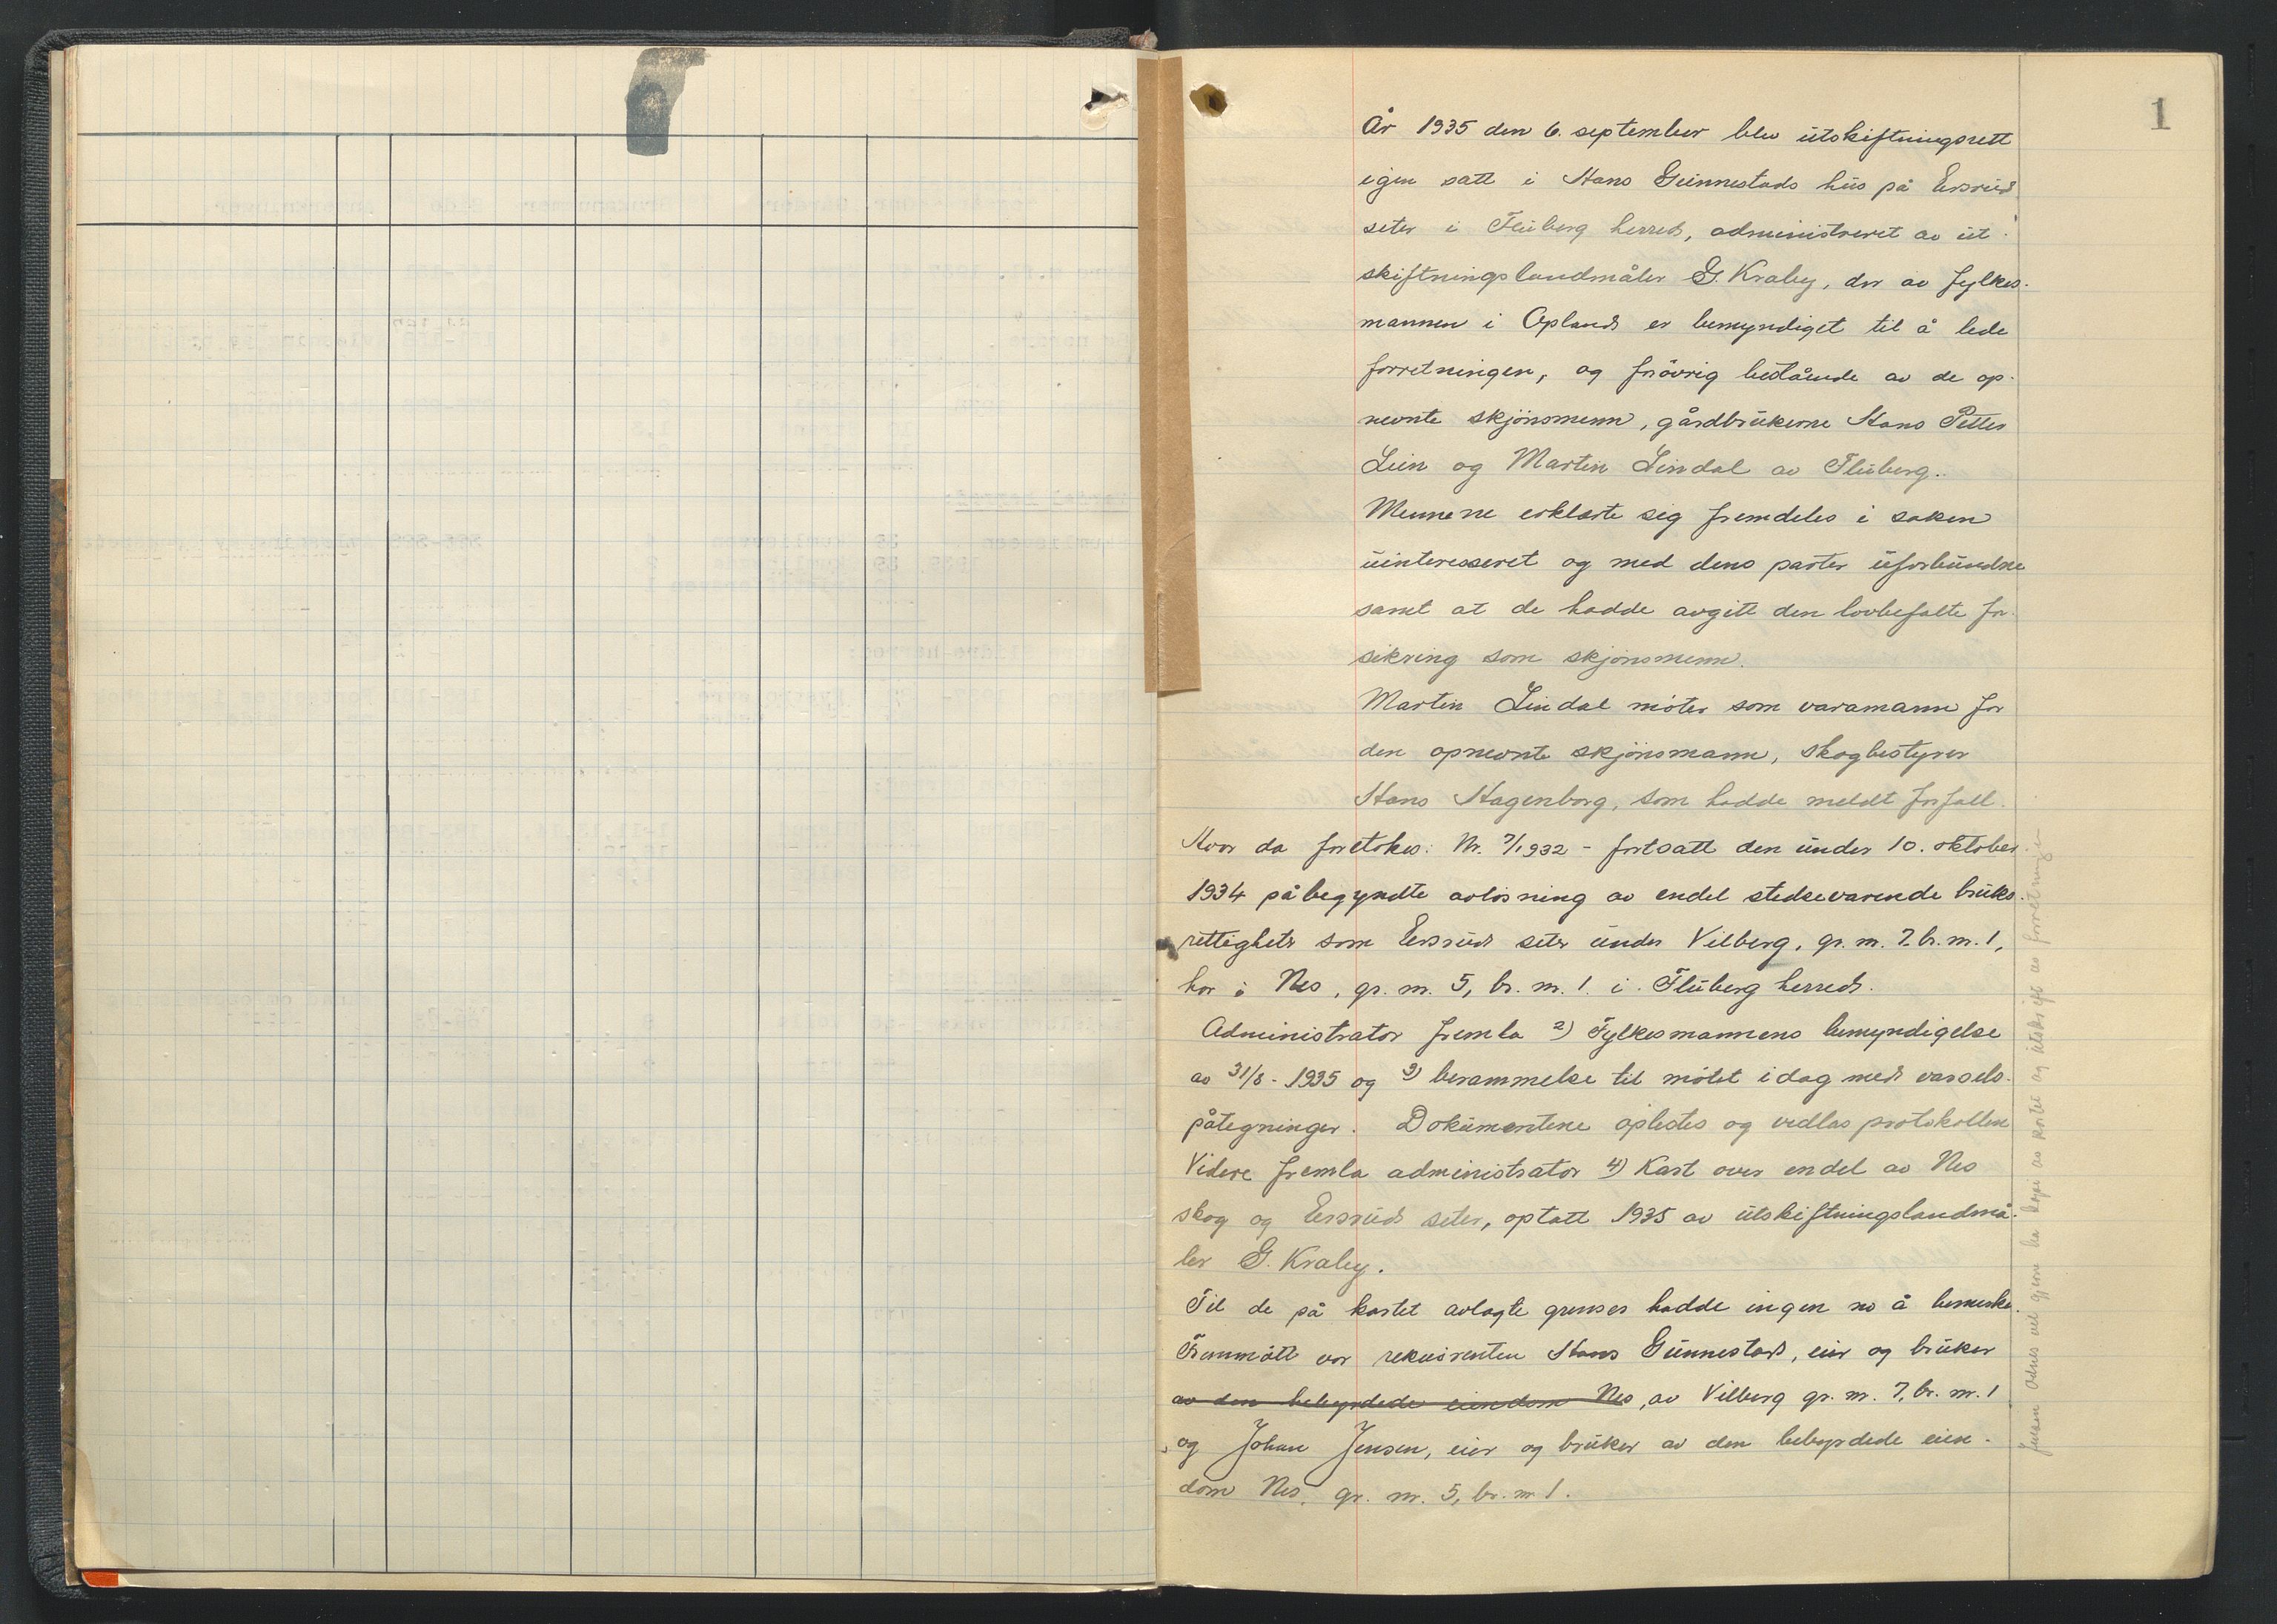 1
År 1935 den 6. september blev utskiftningsrett
igen satt i Hans Gunnestads hus på Ersrud
seter i Fluberg herred, administreret av ut-
skiftningslandmåler G. Kraby, der av fylkes-
mannen i Opland er bemyndiget til å lede
forretningen, og forövrig bestående av de op-
nevnte skjönsmenn, gårdbrukerne Hans Petter
Lien og Martin Lindal av Fluberg.
Mennene erklærte sig fremdeles i saken
uinteresseret og med dens parter uforbundne
samt at de hadde avgitt den lovbefalte for-
sikring som skjönsmenn.
Martin Lindal möter som varamann for
den opnevnte skjönsmann, skogbestyrer
Hans Hagenborg, som hadde meldt forfall.
Hvor da foretokes: Nr. 7/1932 - fortsatt den under 10. oktober
1934 påbegyndte avlösning av endel stedsevarende bruks-
rettigheter som Ersrud seter under Vilberg, gr. nr. 7. br. nr. 1,
har i Nes, gr. nr. 5, br. nr. 1. i Fluberg herred.
Administrator fremla 2) Fylkesmannens bemyndigelse
av 31/8 - 1935 og 3) berammelse til mötet idag med varsels-
påtegninger. Dokumentene oplestes og vedlas protokollen
Videre fremla administrator 4) Kart over endel av Nes
skog og Ersrud seter, optatt 1935 av utskiftningslandmå-
ler G. Kraby.
Til de på kartet avlagte grenser hadde ingen no å bemerke.
Fremmött var rekvirenten Hans Gunnestad, eier og bruker
av den bebyrdede eiendom Nes, av Vilberg gr. nr. 7, br. nr. 1
og Johan Jensen, eier og bruker av den bebyrdede eien-
dom Nes, gr. nr. 5, br. nr 1.
Jensen vil gjerne ha kopi av kartet og utskrift av forretningen